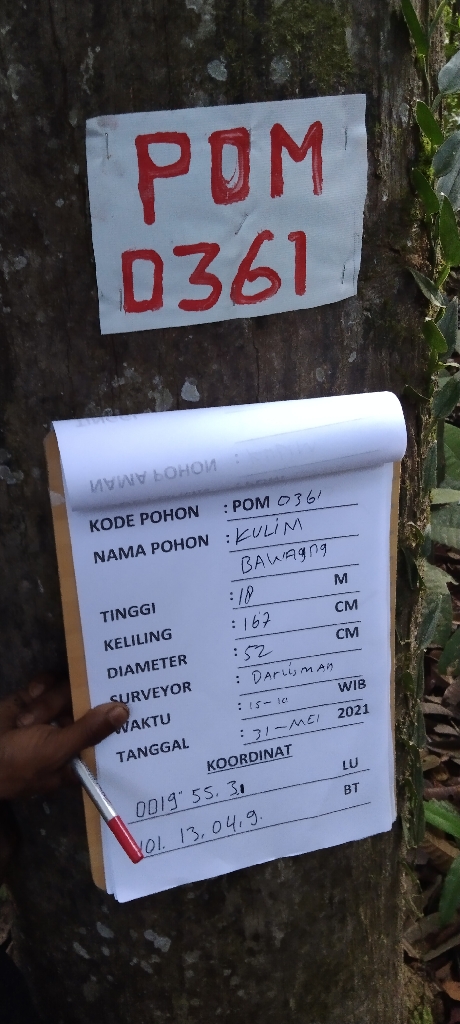 POM
0361
KODE POHON : POM 0361
NAMA POHON : KULIM
BAWAgng
TINGGI : 18 M
KELILING : 167 CM
DIAMETER : 52 CM
SURVEYOR : Darlisman
WAKTU : 15-10 WIB
TANGGAL : 31-MEI 2021
KOORDINAT
0019" 55.31 LU
101. 13.04.9. BT